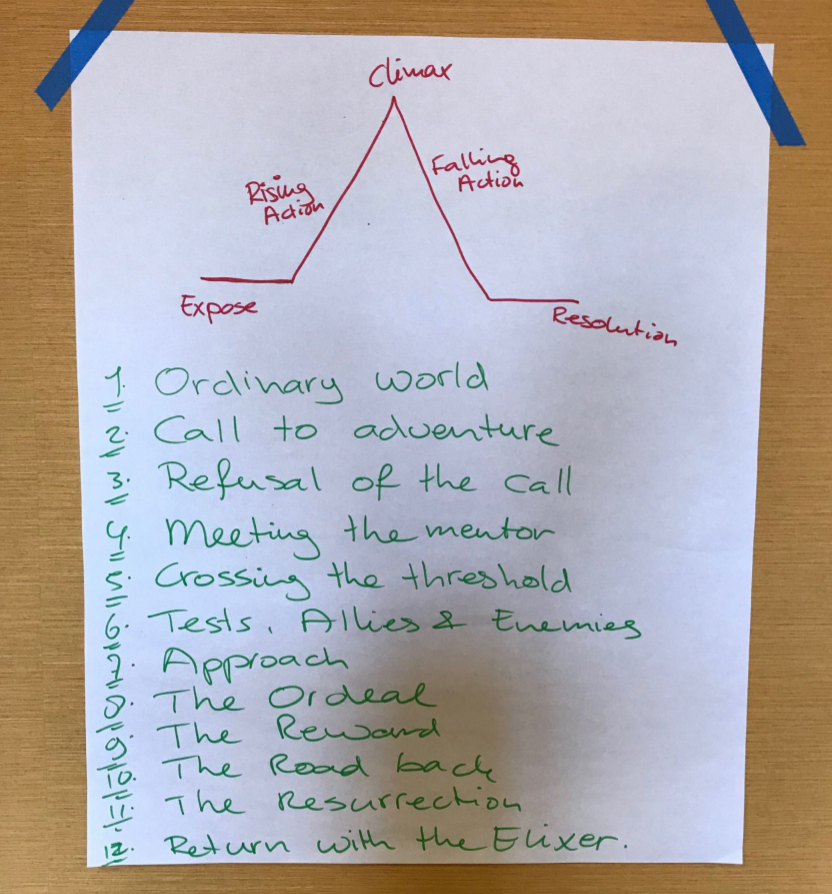 Climax
Rising
Action
Falling
Action
Expose
Resolution
1. Ordinary world
2. Call to adventure
3. Refusal of the call
4. Meeting the mentor
5. Crossing the threshold
6. Tests, Allies & Enemies
7. Approach
8. The Ordeal
9. The Reward
10. The Road back
11. The Resurrection
12. Return with the Elixer.